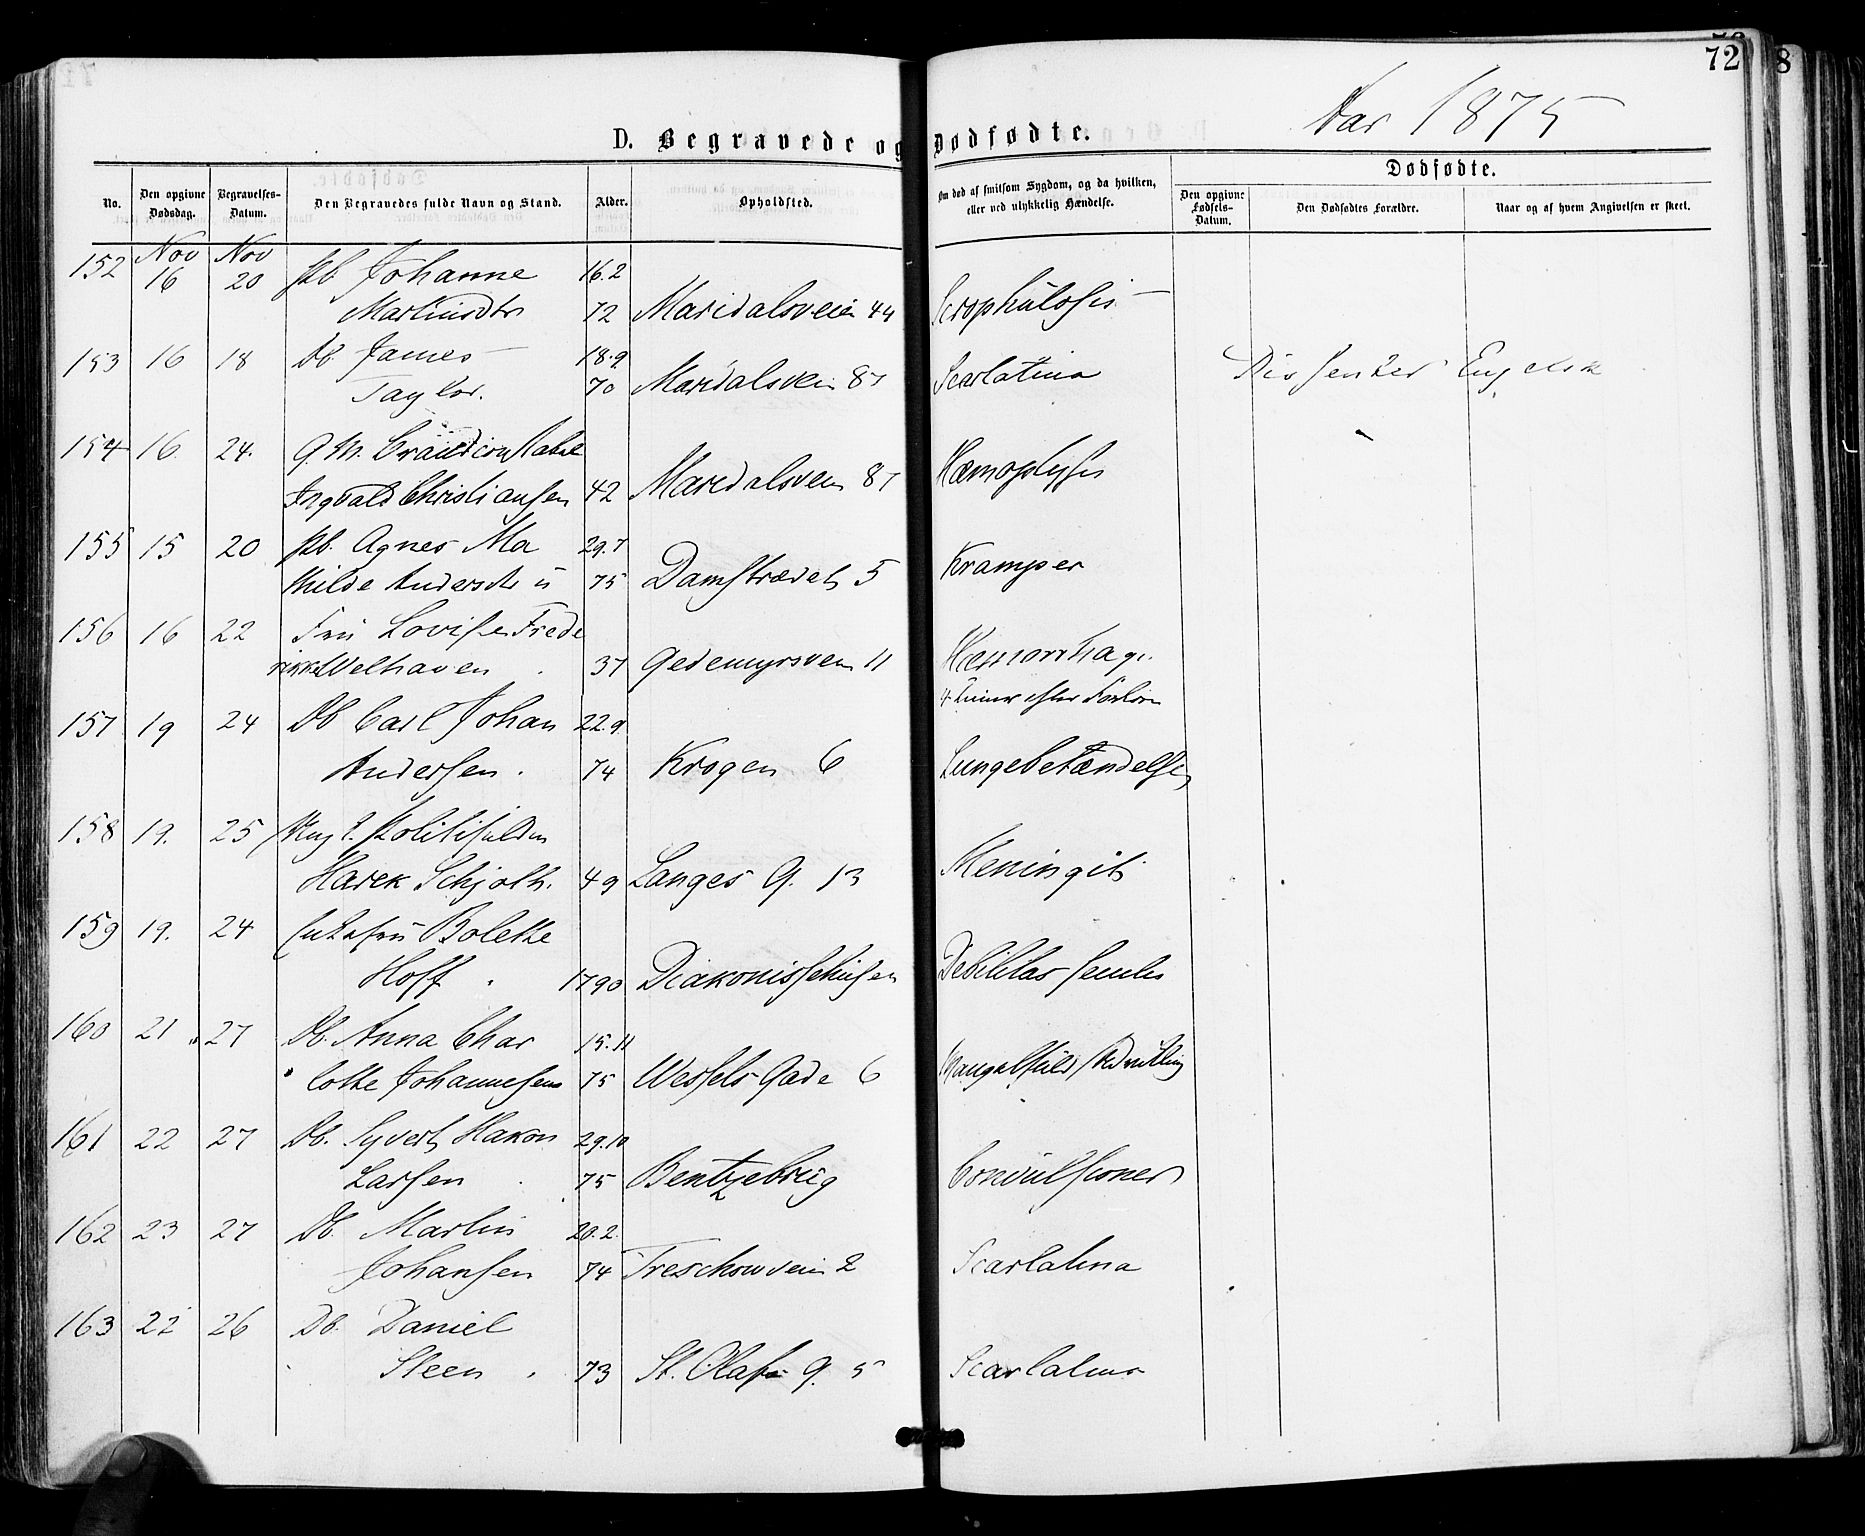 72
Aar 1875
D. Begravede og Dødfødte.
No. Den opgivne Dødsdag. Begravelses-Datum. Den Begravedes fulde Navn og Stand. Alder. Opholdsted. Om død af smitsom Sygdom, og da hvilken, eller ved ulykkelig Hændelse. Dødfødte.
Den opgivne Fødsels-Datum. Den Dødfødtes Forældre. Naar og af hvem Angivelsen er skeet.
152 Nov 16 Nov 20 Pb Johanne 16.2
Martinsdtr 72 Maridalsveien 44 Scrophulosis
153 16 18 Db. James 18.9
Taylor. 70 Maridalsvein 87 Scarlatina Dissenter Engelsk
154 16. 24. G. M.
Ingvald Christiansen 42 Maridalsvein 87 Hæmoptysis
155 15 20 Pb. Agnes Ma 29.7
thilde Andersdtr 75 Damstrædet 5 Kramper
156 16 22 Fru Lovise Frede
rikke Welhaven 37 Gedemyrsvein 11 Hæmorrhag.
4 Timer efter
157 19 24 Db Carl Johan 22.9.
Andersen. 74 Krogen 6 Lungebetændelse
158 19. 25
Harek Schjøth. 49 Langes G. 13 Meningit
159 19. 24 Bolette
Hoff 1790 Diakonissehusen Debilitas senilis
160 21 27 Db. Anna Char 15.11
lotte Johannesen 75 Wessels Gade 6 Mangelfuld Udvikling
161 22 27 Db. Syvert Hakon 29.10
Larsen 75 Bentzebrug Convulsioner
162 23 27 Db. Martin 20.2.
Johansen 74 Treschowvein 2 Scarlatina
163 22 26 Db. Daniel
Steen 73 St. Olafs G. 5 Scarlatina